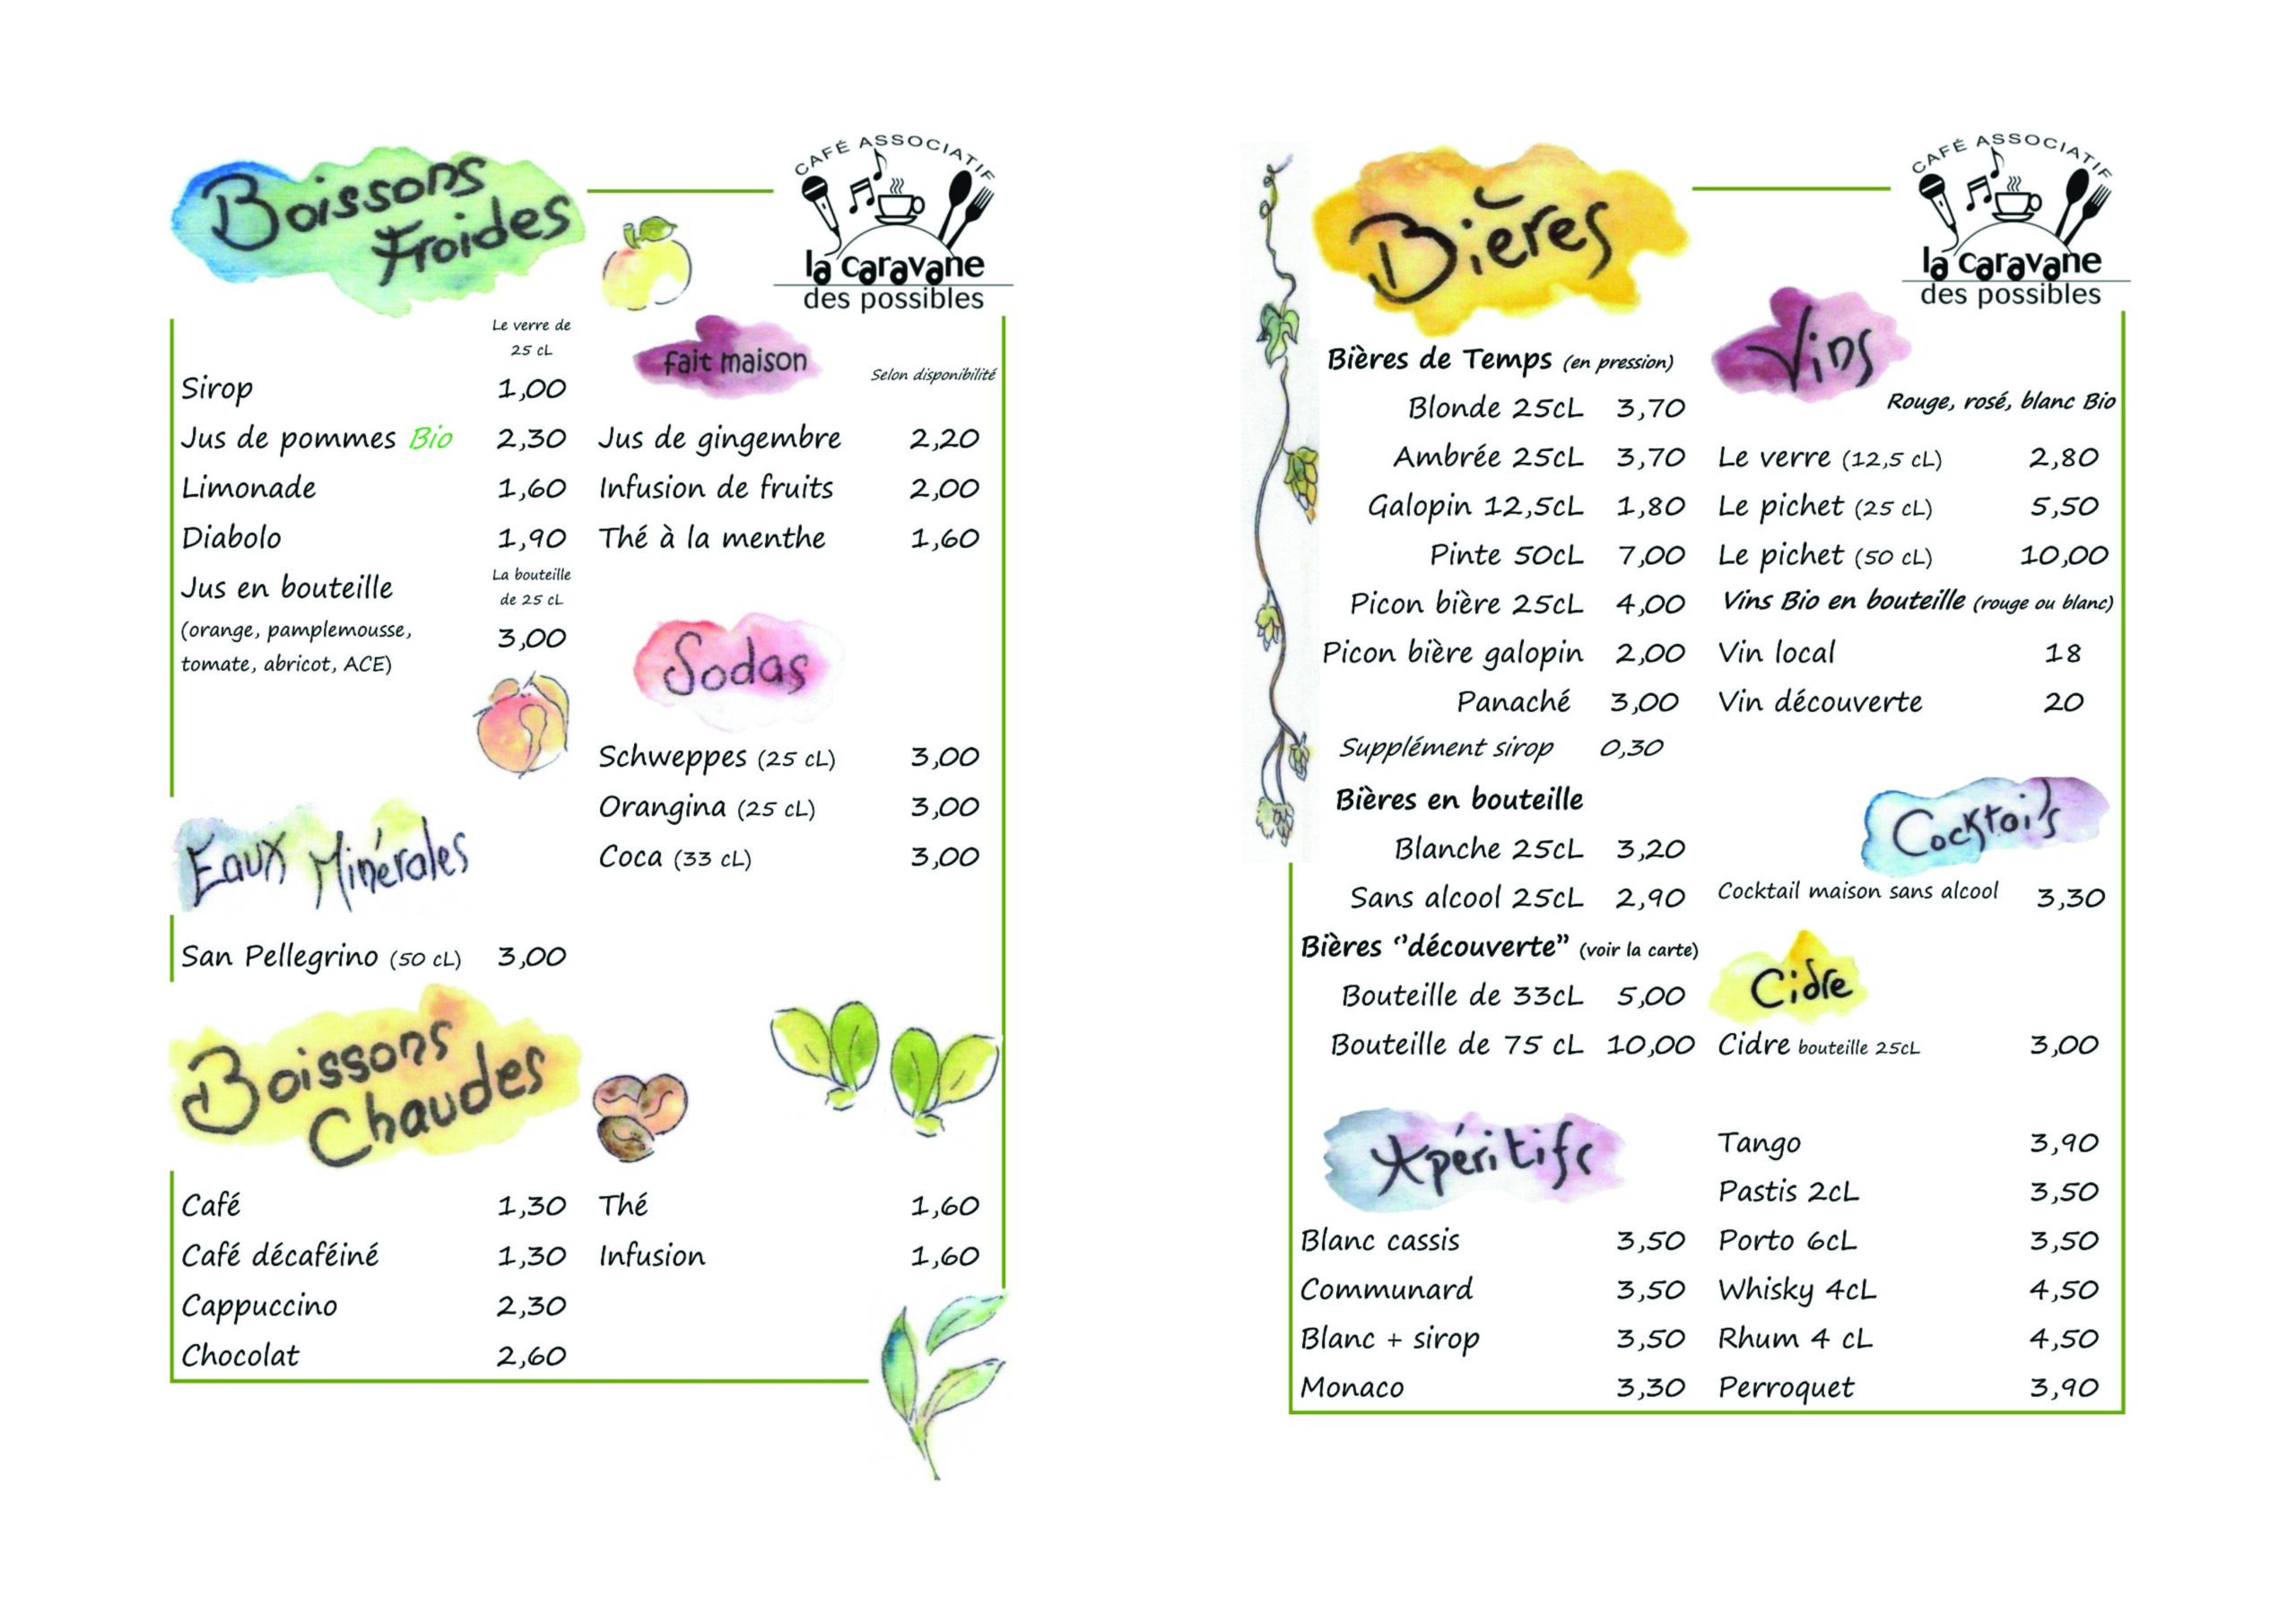 Boissons
Froides
CAFÉ ASSOCIATIF
la caravane
des possibles
Le verre de
25 cL
Sirop 1,00
Jus de pommes Bio 2,30
Limonade 1,60
Diabolo 1,90
Jus en bouteille
La bouteille
de 25 cL
(orange, pamplemousse,
tomate, abricot, ACE)
3,00
fait maison
Selon disponibilité
Jus de gingembre 2,20
Infusion de fruits 2,00
Thé à la menthe 1,60
Sodas
Schweppes (25 cL) 3,00
Orangina (25 cL) 3,00
Coca (33 cL) 3,00
Eaux Minérales
San Pellegrino (50 cL) 3,00
Boissons
Chaudes
Café 1,30
Café décaféiné 1,30
Cappuccino 2,30
Chocolat 2,60
Thé 1,60
Infusion 1,60
Bières
CAFÉ ASSOCIATIF
la caravane
des possibles
Bières de Temps (en pression)
Blonde 25cL 3,70
Ambrée 25cL 3,70
Galopin 12,5cL 1,80
Pinte 50cL 7,00
Picon bière 25cL 4,00
Picon bière galopin 2,00
Panaché 3,00
Supplément sirop 0,30
Bières en bouteille
Blanche 25cL 3,20
Sans alcool 25cL 2,90
Bières ‘’découverte” (voir la carte)
Bouteille de 33cL 5,00
Bouteille de 75 cL 10,00
Vins
Rouge, rosé, blanc Bio
Le verre (12,5 cL) 2,80
Le pichet (25 cL) 5,50
Le pichet (50 cL) 10,00
Vins Bio en bouteille (rouge ou blanc)
Vin local 18
Vin découverte 20
Cocktails
Cocktail maison sans alcool 3,30
Cidre
Cidre bouteille 25cL 3,00
Apéritifs
Blanc cassis 3,50
Communard 3,50
Blanc + sirop 3,50
Monaco 3,30
Tango 3,90
Pastis 2cL 3,50
Porto 6cL 3,50
Whisky 4cL 4,50
Rhum 4 cL 4,50
Perroquet 3,90